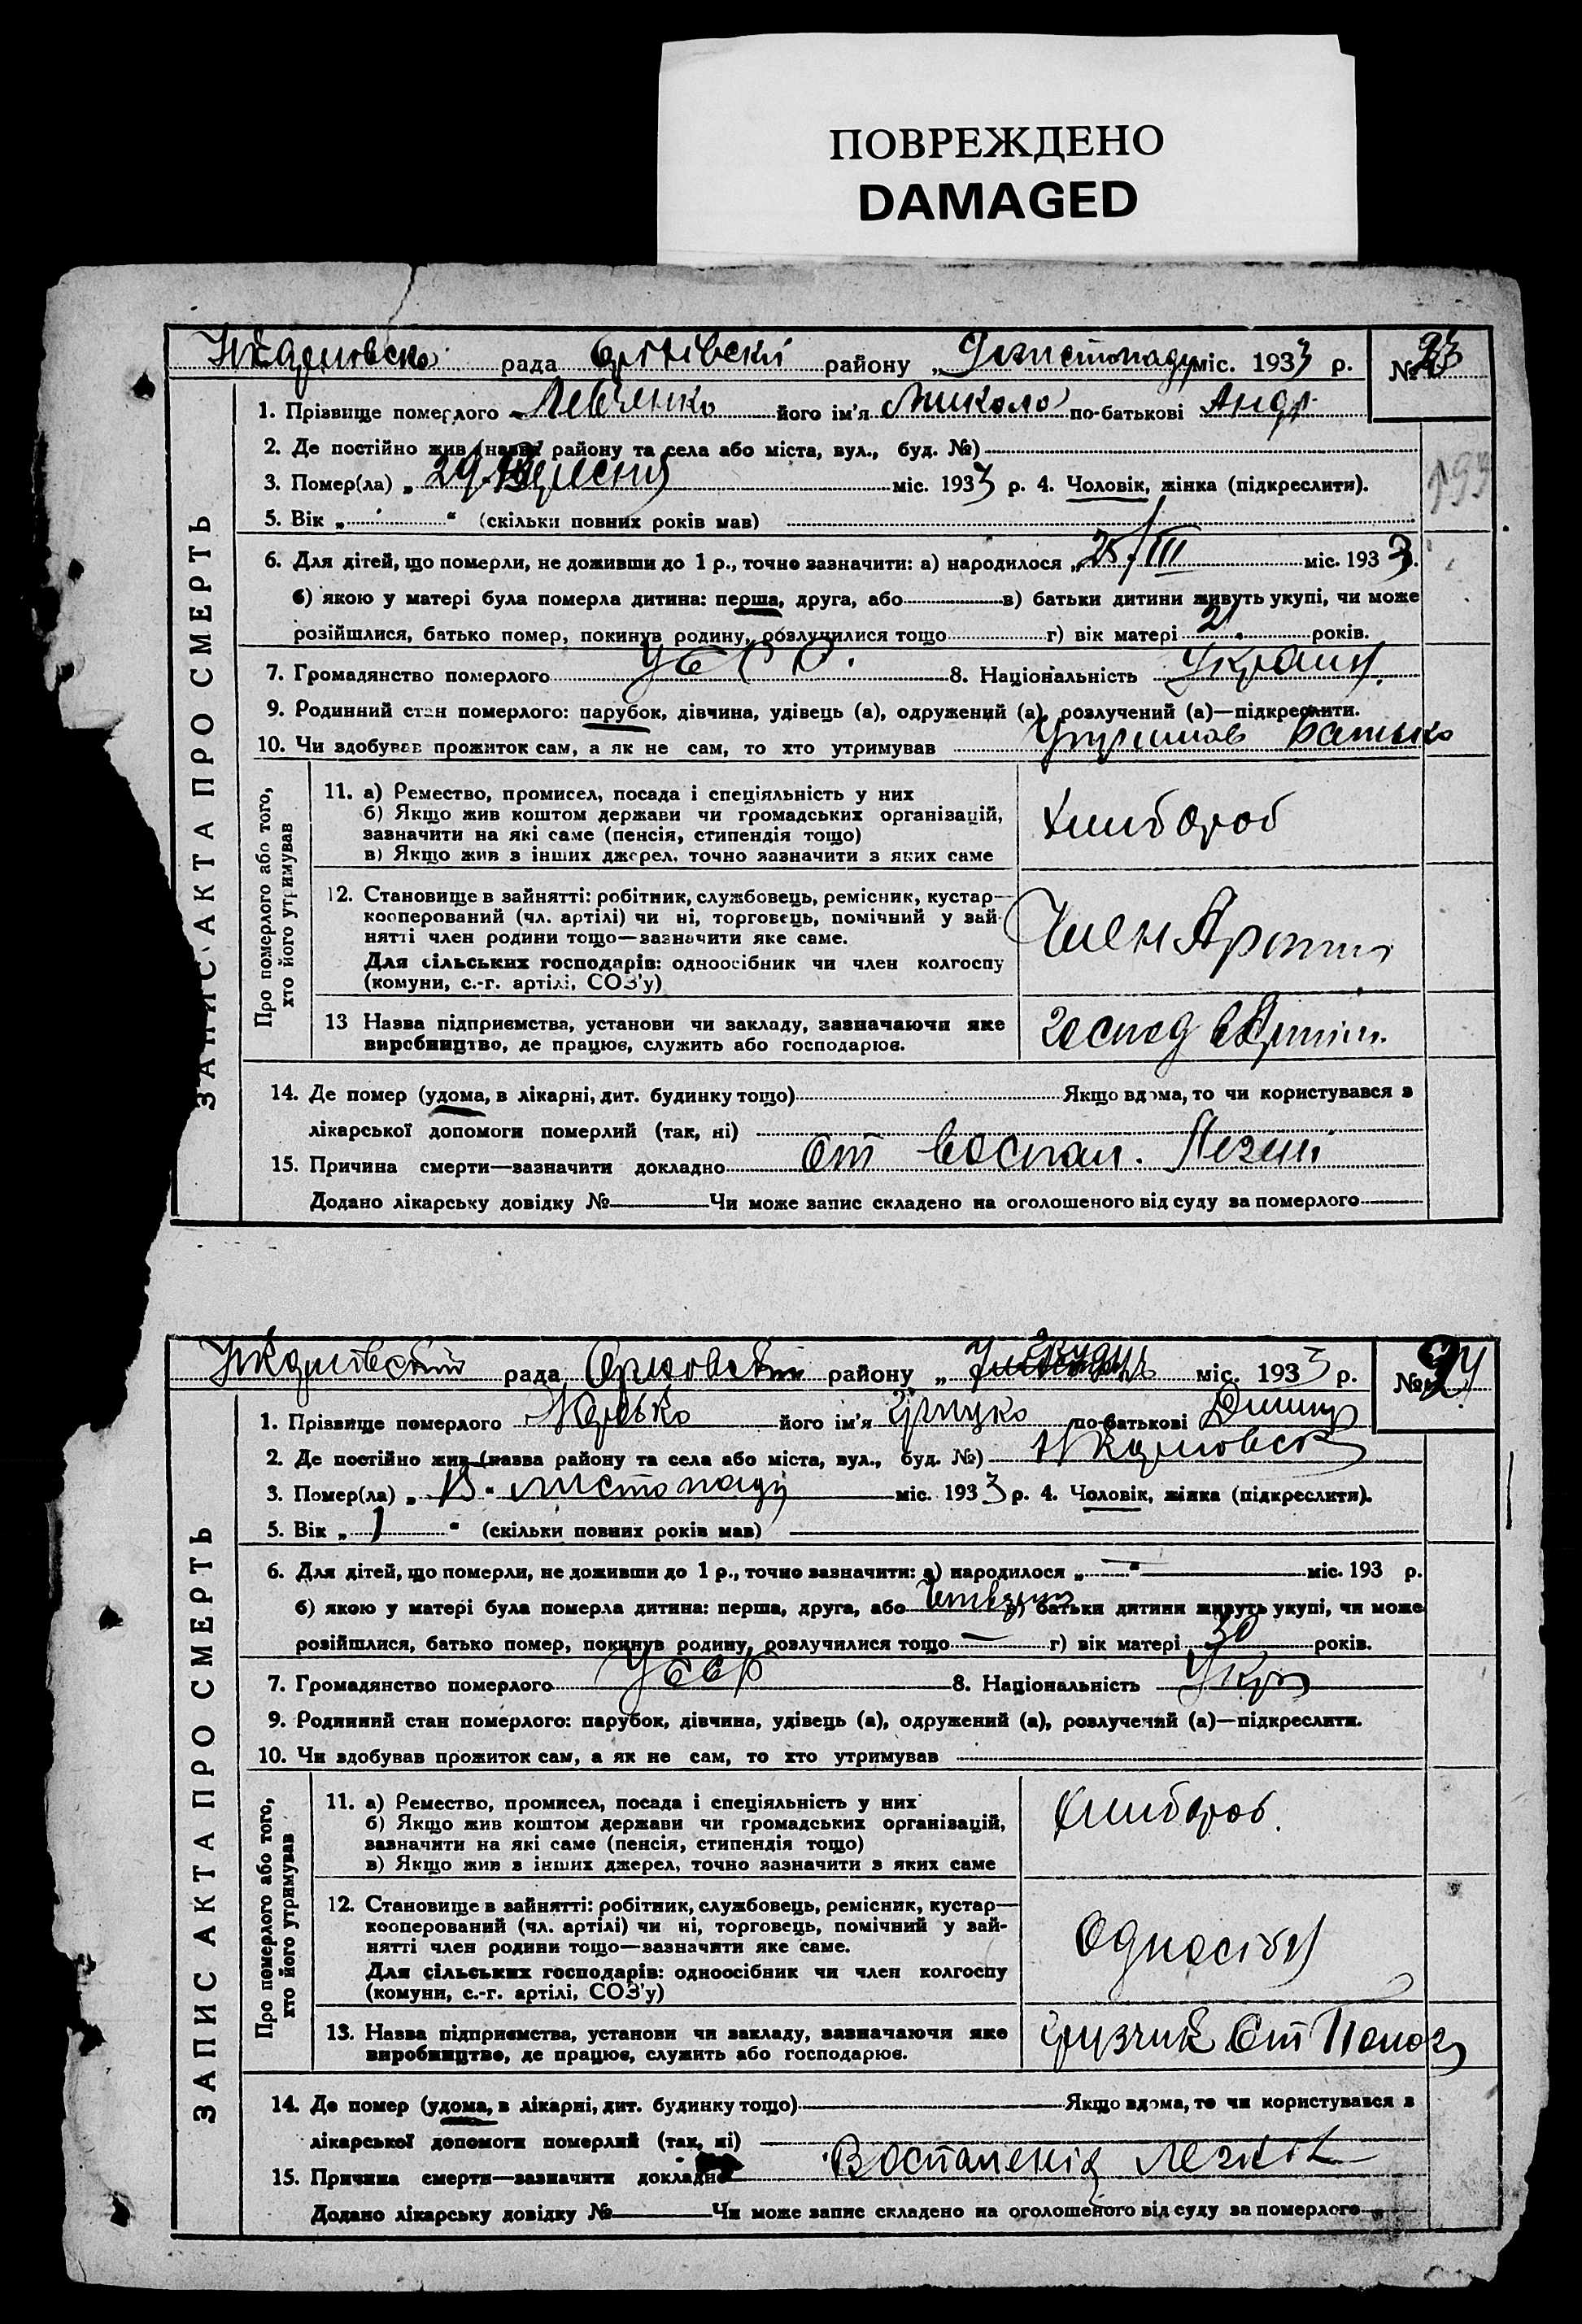 ПОВРЕЖДЕНО
DAMAGED
рада району „ міс. 1933 р. №
1. Прізвище померлого Левченко його ім'я Миколо по-батькові Андр
2. Де постійно жив (назва району та села або міста, вул., буд. №)
3. Помер(ла) „ 29 Вересня міс. 1933 р. 4. Чоловік, жінка (підкреслити).
5. Вік „ “ (скільки повних років мав)
6. Для дітей, що померли, не доживши до 1 р., точно зазначити: а) народилося „ 25/III міс. 1933.
б) якою у матері була померла дитина: перша, друга, або в) батьки дитини живуть укупі, чи може
розійшлися, батько помер, покинув родину, розлучилися тощо г) вік матері 21 років.
7. Громадянство померлого 8. Національність Украин.
9. Родинний стан померлого: парубок, дівчина, удівець (а), одружений (а), розлучений (а)—підкреслити.
10. Чи здобував прожиток сам, а як не сам, то хто утримував Утримав Батько
ЗАПИС АКТА ПРО СМЕРТЬ
Про померлого або того,
хто його утримував
11. а) Ремество, промисел, посада і спеціяльність у них
б) Якщо жив коштом держави чи громадських організацій,
зазначити на які саме (пенсія, стипендія тощо)
в) Якщо жив з інших джерел, точно зазначити з яких саме
Хлибороб
12. Становище в зайнятті: робітник, службовець, ремісник, кустар—
кооперований (чл. артілі) чи ні, торговець, помічний у зай-
нятті член родини тощо—зазначити яке саме.
Для сільських господарів: одноосібник чи член колгоспу
(комуни, с.-г. артілі, СОЗ'у)
Член
13 Назва підприємства, установи чи закладу, зазначаючи яке
виробництво, де працює, служить або господарює.
господ в
14. Де помер (удома, в лікарні, дит. будинку тощо) Якщо вдома, то чи користувався з
лікарської допомоги померлий (так, ні)
15. Причина смерти—зазначити докладно От воспал. Легені
Додано лікарську довідку № Чи може запис складено на оголошеного від суду за померлого
рада району „ міс. 1933 р. № 24
1. Прізвище померлого його ім'я Грицко по-батькові
2. Де постійно жив (назва району та села або міста, вул., буд. №)
3. Помер(ла) „ листопада міс. 1933 р. 4. Чоловік, жінка (підкреслити).
5. Вік „ 1 “ (скільки повних років мав)
6. Для дітей, що померли, не доживши до 1 р., точно зазначити: а) народилося „ “ міс. 193 р.
б) якою у матері була померла дитина: перша, друга, або в) батьки дитини живуть укупі, чи може
розійшлися, батько помер, покинув родину, розлучилися тощо г) вік матері 30 років.
7. Громадянство померлого Усср 8. Національність Укр
9. Родинний стан померлого: парубок, дівчина, удівець (а), одружений (а), розлучений (а)—підкреслити.
10. Чи здобував прожиток сам, а як не сам, то хто утримував
ЗАПИС АКТА ПРО СМЕРТЬ
Про померлого або того,
хто його утримував
11. а) Ремество, промисел, посада і спеціяльність у них
б) Якщо жив коштом держави чи громадських організацій,
зазначити на які саме (пенсія, стипендія тощо)
в) Якщо жив з інших джерел, точно зазначити з яких саме
Хлибороб.
12. Становище в зайнятті: робітник, службовець, ремісник, кустар—
кооперований (чл. артілі) чи ні, торговець, помічний у зай-
нятті член родини тощо—зазначити яке саме.
Для сільських господарів: одноосібник чи член колгоспу
(комуни, с.-г. артілі, СОЗ'у)
13. Назва підприємства, установи чи закладу, зазначаючи яке
виробництво, де працює, служить або господарює.
грузчик Ст
14. Де помер (удома, в лікарні, дит. будинку тощо) Якщо вдома, то чи користувався з
лікарської допомоги померлий (так, ні)
15. Причина смерти—зазначити докладно Воспаления
Додано лікарську довідку № Чи може запис складено на оголошеного від суду за померлого